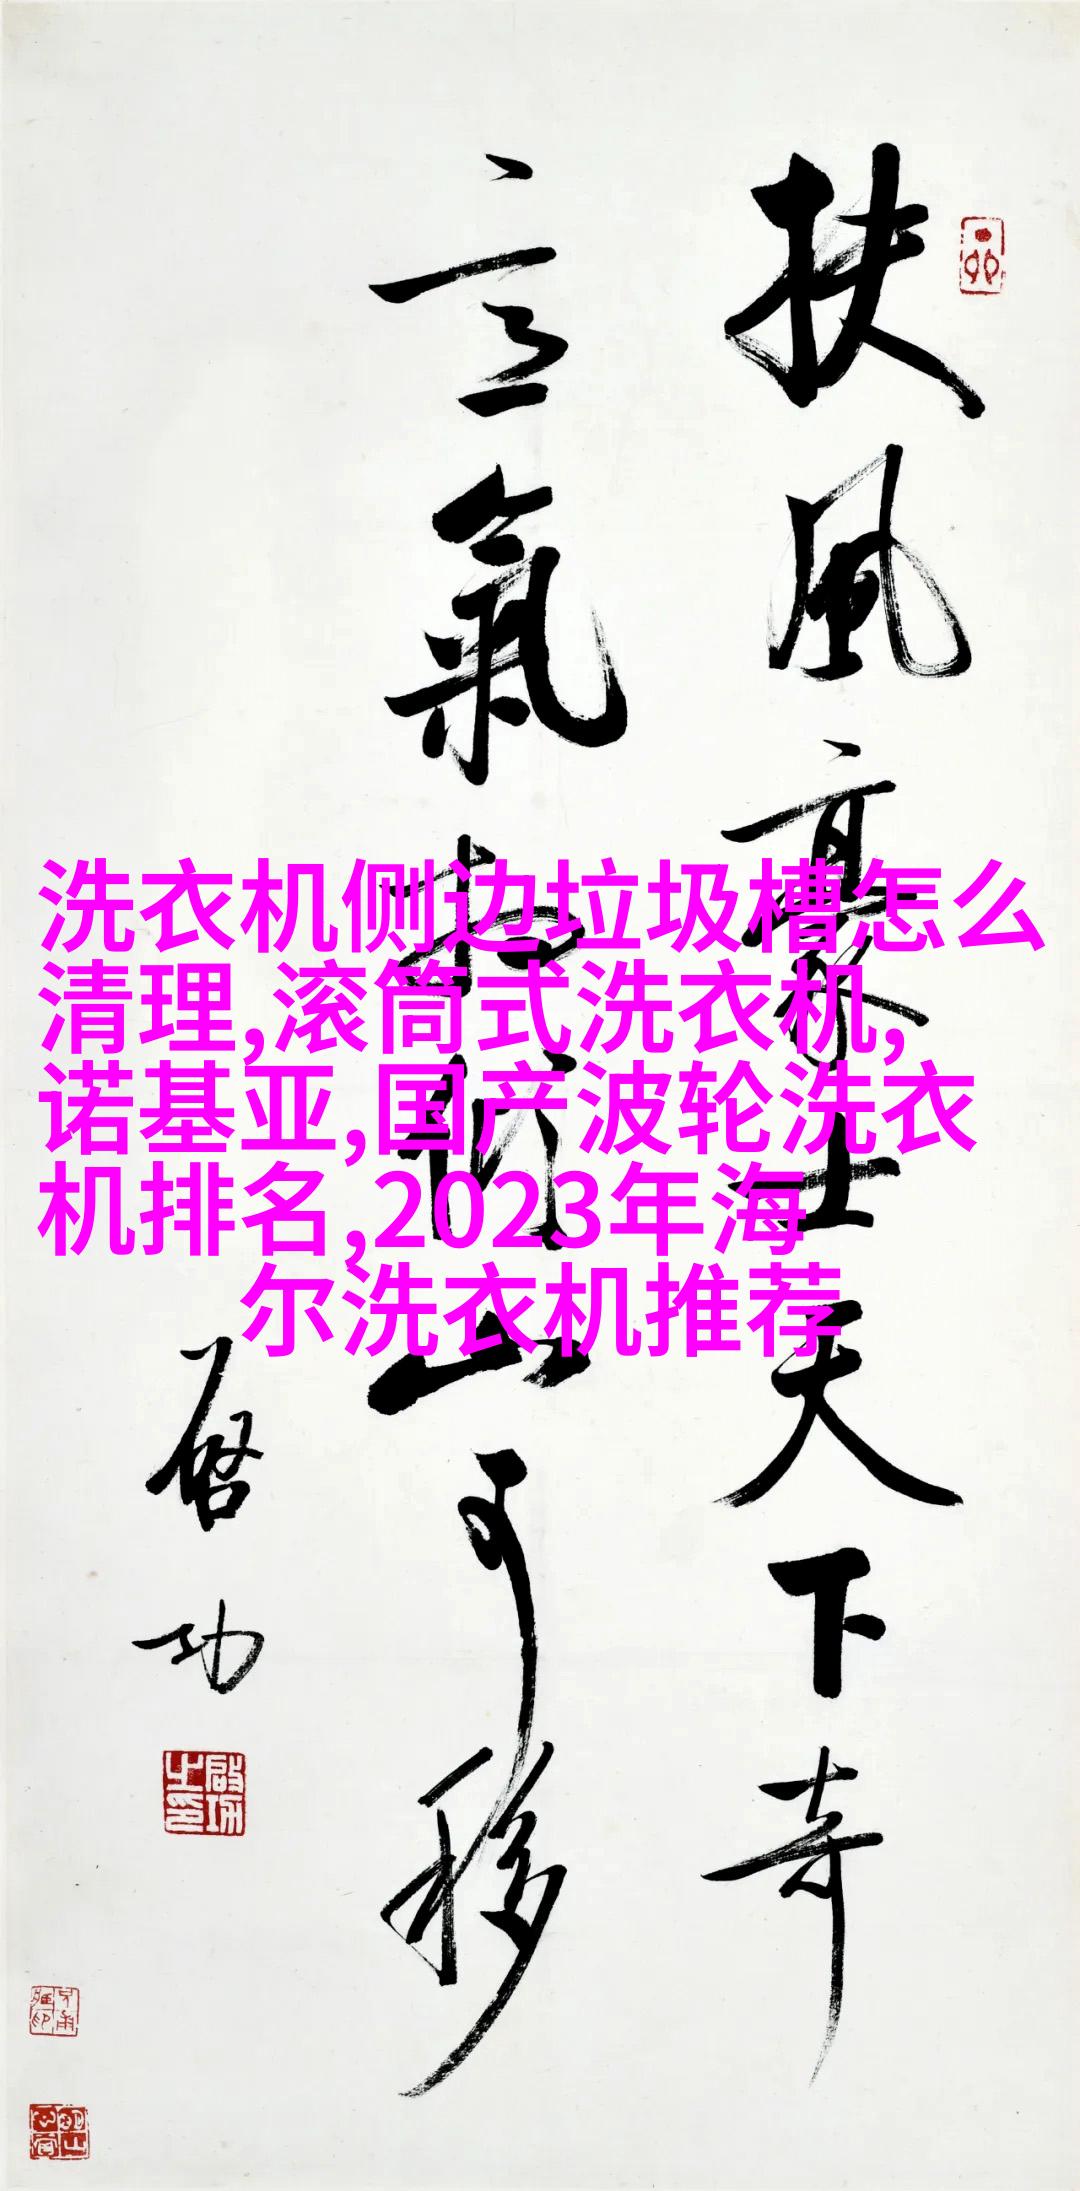 扶風豪士天下奇
意氣相傾山可移
啓功
洗衣机侧边垃圾槽怎么
清理,滚筒式洗衣机,
诺基亚,国产波轮洗衣
机排名,2023年海
尔洗衣机推荐
啟功之印